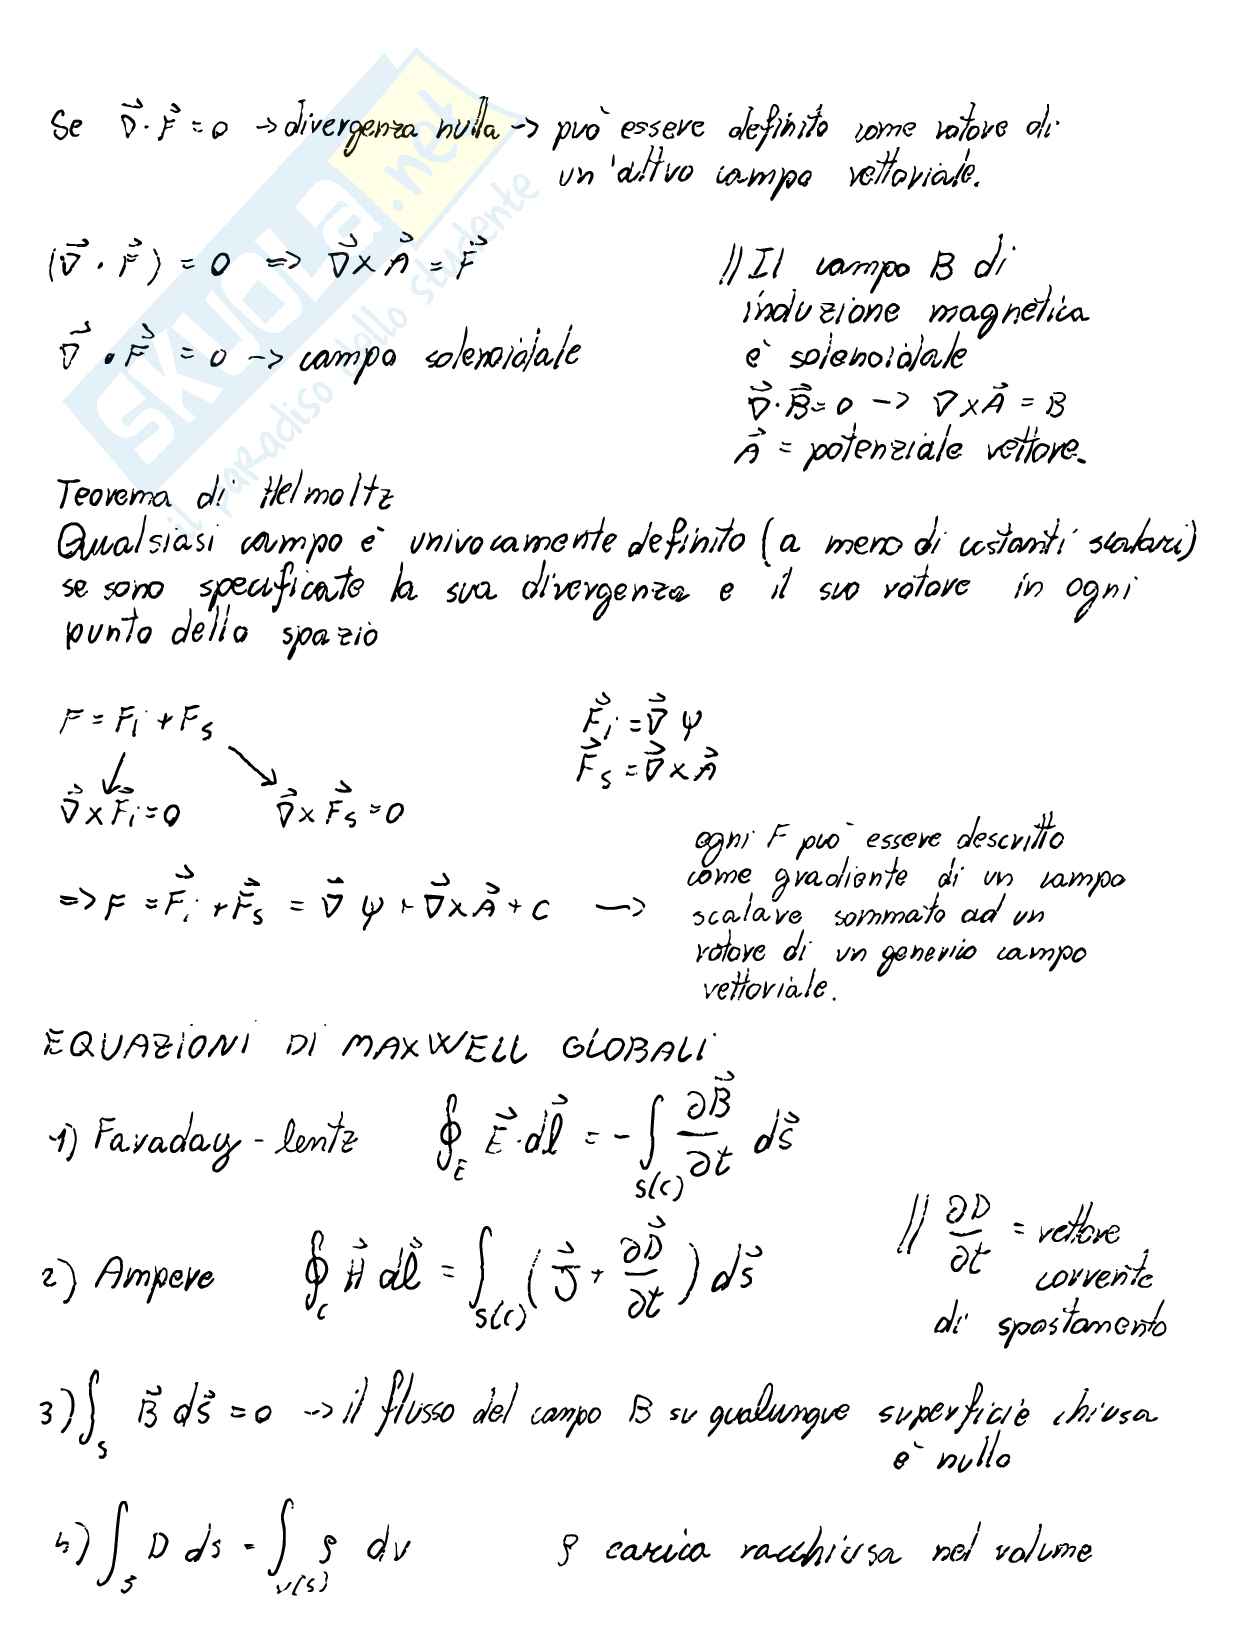 SKUOLA.net
il paradiso dello studente
Se ∇⃗·F⃗ = 0 → divergenza nulla → può essere definito come rotore di
un'altro campo vettoriale.
(∇⃗·F⃗) = 0 => ∇⃗×A⃗ = F⃗
∇⃗·F⃗ = 0 → campo solenoidale
// Il campo B di
induzione magnetica
è solenoidale
∇⃗·B⃗=0 → ∇×A⃗ = B
A⃗ = potenziale vettore.
Teorema di Helmoltz
Qualsiasi campo è univocamente definito (a meno di costanti scalari)
se sono specificate la sua divergenza e il suo rotore in ogni
punto dello spazio
F = Fi + Fs
∇⃗×F⃗i=0 ∇⃗×F⃗s=0
F⃗i = ∇⃗ψ
F⃗s = ∇⃗×A⃗
=> F = F⃗i + F⃗s = ∇⃗ψ + ∇⃗×A⃗ + C →
ogni F può essere descritto
come gradiente di un campo
scalare sommato ad un
rotore di un generico campo
vettoriale.
EQUAZIONI DI MAXWELL GLOBALI
1) Faraday - lentz ∮E E⃗·dl⃗ = - ∫S(C) ∂B⃗/∂t ds⃗
2) Ampere ∮C H⃗ dl⃗ = ∫S(C) (J⃗ + ∂D⃗/∂t) ds⃗
// ∂D/∂t = vettore
corrente
di spostamento
3) ∫S B⃗ ds⃗ = 0 → il flusso del campo B su qualunque superficie chiusa
è nullo
4) ∫S D ds = ∫V(S) ρ dv ρ carica racchiusa nel volume